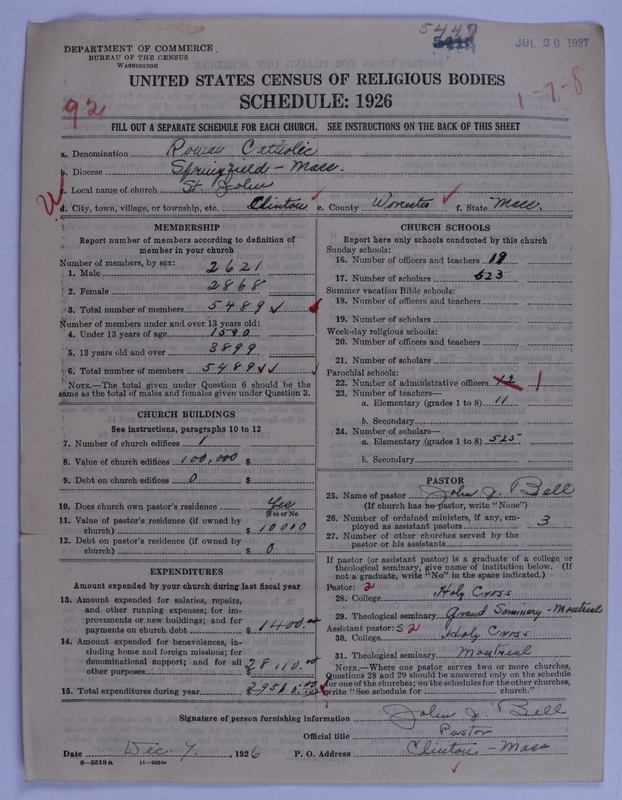 5447
JUL 26 1927
DEPARTMENT OF COMMERCE
BUREAU OF THE CENSUS
WASHINGTON
UNITED STATES CENSUS OF RELIGIOUS BODIES
SCHEDULE: 1926
92
1-7-8
FILL OUT A SEPARATE SCHEDULE FOR EACH CHURCH. SEE INSTRUCTIONS ON THE BACK OF THIS SHEET
a. Denomination Roman Catholic
b. Diocese Springfield - Mass.
c. Local name of church St. John
d. City, town, village, or township, etc. Clinton e. County Worcester f. State Mass.
MEMBERSHIP
Report number of members according to definition of
member in your church
Number of members, by sex:
1. Male 2621
2. Female 2868
3. Total number of members 5489
Number of members under and over 13 years old:
4. Under 13 years of age 1590
5. 13 years old and over 3899
6. Total number of members 5489
NOTE.—The total given under Question 6 should be the
same as the total of males and females given under Question 3.
CHURCH BUILDINGS
See instructions, paragraphs 10 to 12
7. Number of church edifices 1
8. Value of church edifices 100,000 $
9. Debt on church edifices 0 $
10. Does church own pastor's residence Yes
(Yes or No)
11. Value of pastor's residence (if owned by
church) $ 10000
12. Debt on pastor's residence (if owned by
church) $ 0
EXPENDITURES
Amount expended by your church during last fiscal year
13. Amount expended for salaries, repairs,
and other running expenses; for im-
provements or new buildings; and for
payments on church debt $ 1400.00
14. Amount expended for benevolences, in-
cluding home and foreign missions; for
denominational support; and for all
other purposes $ 28110.00
15. Total expenditures during year $ 29510.00
CHURCH SCHOOLS
Report here only schools conducted by this church
Sunday schools:
16. Number of officers and teachers 19
17. Number of scholars 523
Summer vacation Bible schools:
18. Number of officers and teachers
19. Number of scholars
Week-day religious schools:
20. Number of officers and teachers
21. Number of scholars
Parochial schools:
22. Number of administrative officers 12 1
23. Number of teachers—
a. Elementary (grades 1 to 8) 11
b. Secondary
24. Number of scholars—
a. Elementary (grades 1 to 8) 525
b. Secondary
PASTOR
25. Name of pastor John J. Bell
(If church has no pastor, write "None")
26. Number of ordained ministers, if any, em-
ployed as assistant pastors 3
27. Number of other churches served by the
pastor or his assistants
If pastor (or assistant pastor) is a graduate of a college or
theological seminary, give name of institution below. (If
not a graduate, write "No" in the space indicated.)
Pastor: 2
28. College Holy Cross
29. Theological seminary Grand Seminary - Montreal
Assistant pastor: S 2
30. College Holy Cross
31. Theological seminary Montreal
NOTE.—Where one pastor serves two or more churches,
Questions 28 and 29 should be answered only on the schedule
for one of the churches; on the schedules for the other churches,
write "See schedule for church."
Signature of person furnishing information John J. Bell
Official title Pastor
Date Dec. 7, 1926 P. O. Address Clinton - Mass
6-5518a 11-9054